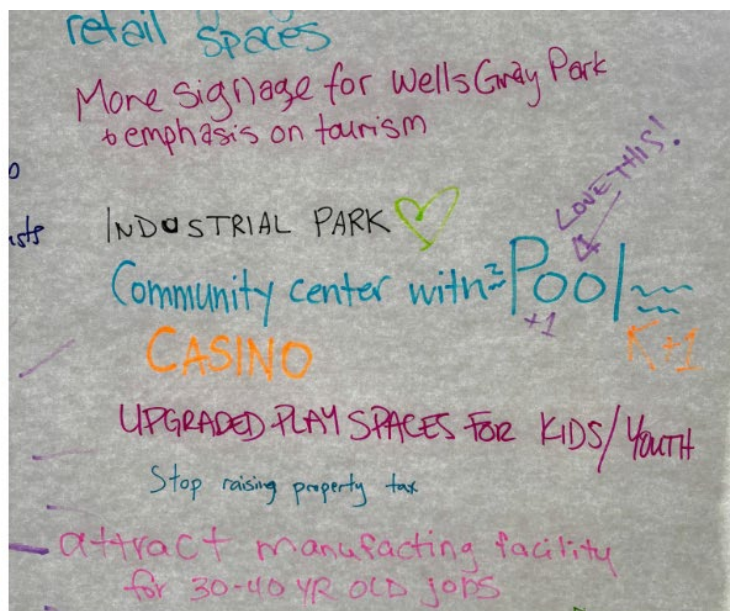 retail spaces
More signage for Wells Gray Park
& emphasis on tourism
LOVE THIS!
INDUSTRIAL PARK
Community center with Pool
+1
+1
CASINO
UPGRADED PLAY SPACES FOR KIDS/YOUTH
Stop raising property tax
attract manufacting facility
for 30-40 YR OLD jobs